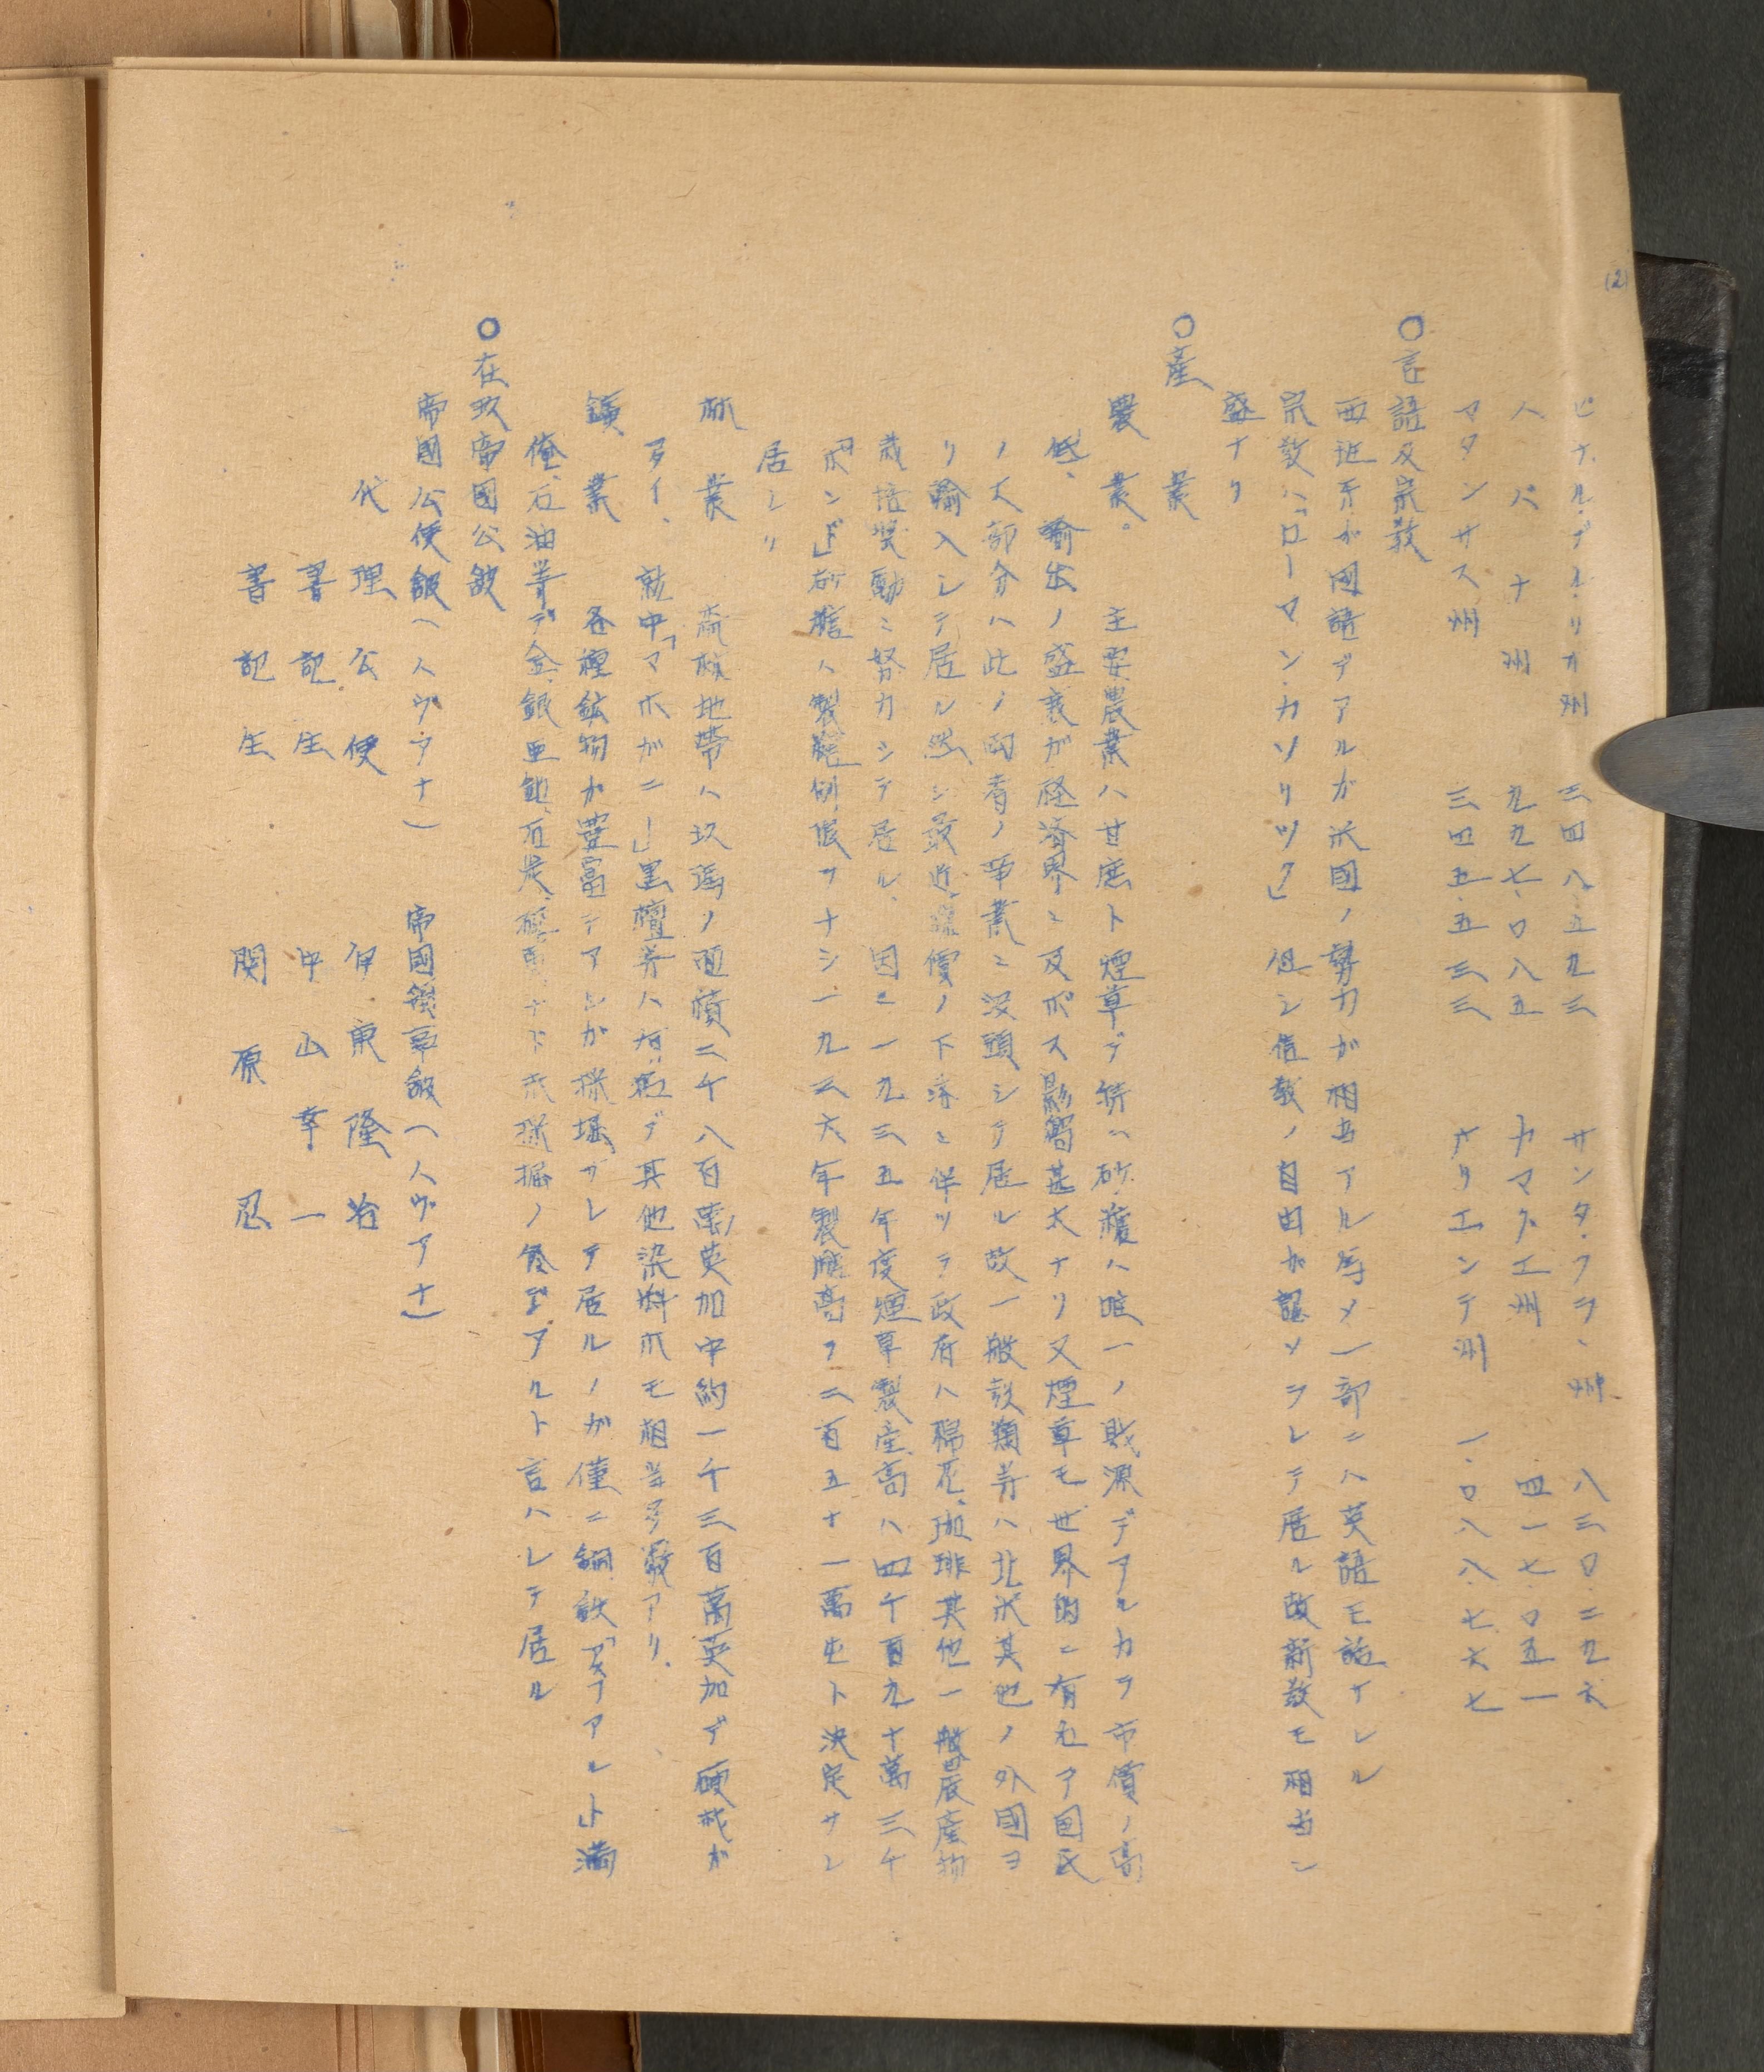 (2)
ピナル・デル・リオ州 三四八.五九三 サンタ・クララ州 八三〇.二九六
ハバナ州 九九七.〇八五 カマグエ州 四一七.〇五一
マタンサス州 三四五.五三三 オリエンテ州 一.〇八八.七六七
〇言語及宗教
西班牙ガ國語デアルガ米國ノ勢力ガ相當アル為メ一部ニハ英語モ話サレル
宗教ハ「ローマン・カソリック」但シ信教ノ自由ガ認メラレテ居ル故新教モ相当ニ
盛ナリ
〇産業
農業。 主要農業ハ甘庶ト煙草デ特ニ砂糖ハ唯一ノ財源デアルカラ市價ノ高
低、輸出ノ盛衰ガ経済界ニ及ボス影響甚大ナリ又煙草モ世界的ニ有名デ国民
ノ大部分ハ此ノ両者ノ事業ニ没頭シテ居ル故一般穀類等ハ北米其他ノ外國ヨ
リ輸入シテ居ル然シ最近糖價ノ下落ニ伴ッテ政府ハ棉花、珈琲其他一般農産物
栽培奨勵ニ努力シテ居ル、因ニ一九三五年度煙草製産高ハ四千百九十萬三千
「ポンド」砂糖ハ製糖制限ヲナシ一九三六年製糖高ヲ二百五十一萬屯ト決定サレ
居レリ
林業 森林地帯ハ玖瑪ノ面積二千八百萬英加中約一千三百萬英加デ硬材ガ
多イ、就中「マホガニー」黒檀等ハ有名デ其他染料木モ相当多数アリ、
鑛業 各種鉱物ガ豊富デアルガ採掘サレテ居ルノガ僅ニ銅、鉄「アスファルト」満
俺、石油等デ金、銀、亜鉛、石炭、
採掘ノ儘デアルト言ハレテ居ル
〇在玖帝國公館
帝國公使館(ハヴアナ) 帝國領事館(ハヴアナ)
代理公使 伊東隆治
書記生 中山幸一
書記生 関原忍